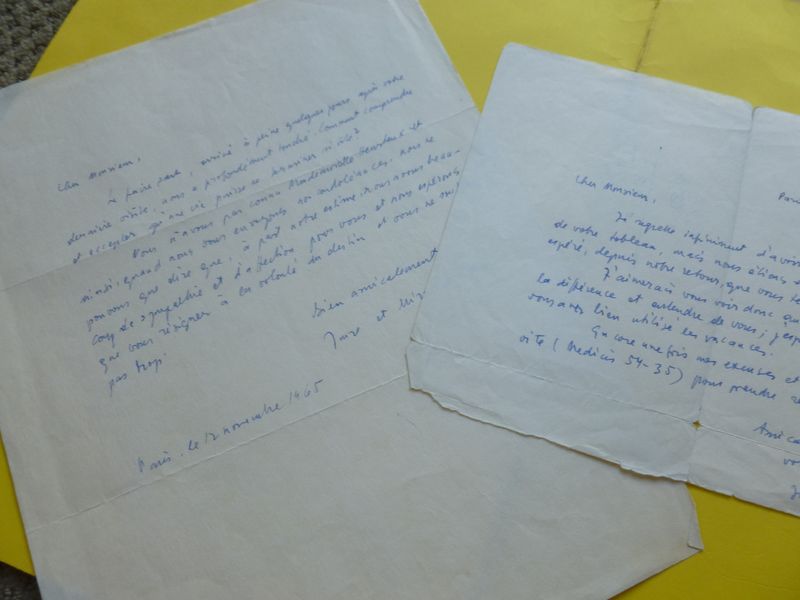 Cher Monsieur,
Le faire part, arrivé à peine quelques jours après votre
dernière visite, nous a profondément touché. Comment comprendre
et accepter qu'une vie puisse se terminer si vite?
Nous n'avons pas connu Mademoiselle et
ainsi, quand nous vous envoyons nos condoléances, nous ne
pouvons que dire que, à part notre estime, nous avons beau-
coup de sympathie et d'affection pour vous et nous espérons
que vous résigner à la volonté du destin et vous ne
pas trop.
Bien amicalement
et
Paris, le 12 novembre 1965
Cher Monsieur,
J'ai regretté infiniment d'avoir
de votre tableau, mais nous étions
espéré, depuis notre retour, que vous
J'aimerais vous voir donc
la différence et entendre de vous; j'esp
vous avez bien utilisé les vacances.
Encore une fois mes excuses et
vite (Medicis 54-35) pour prendre
Amica
vo